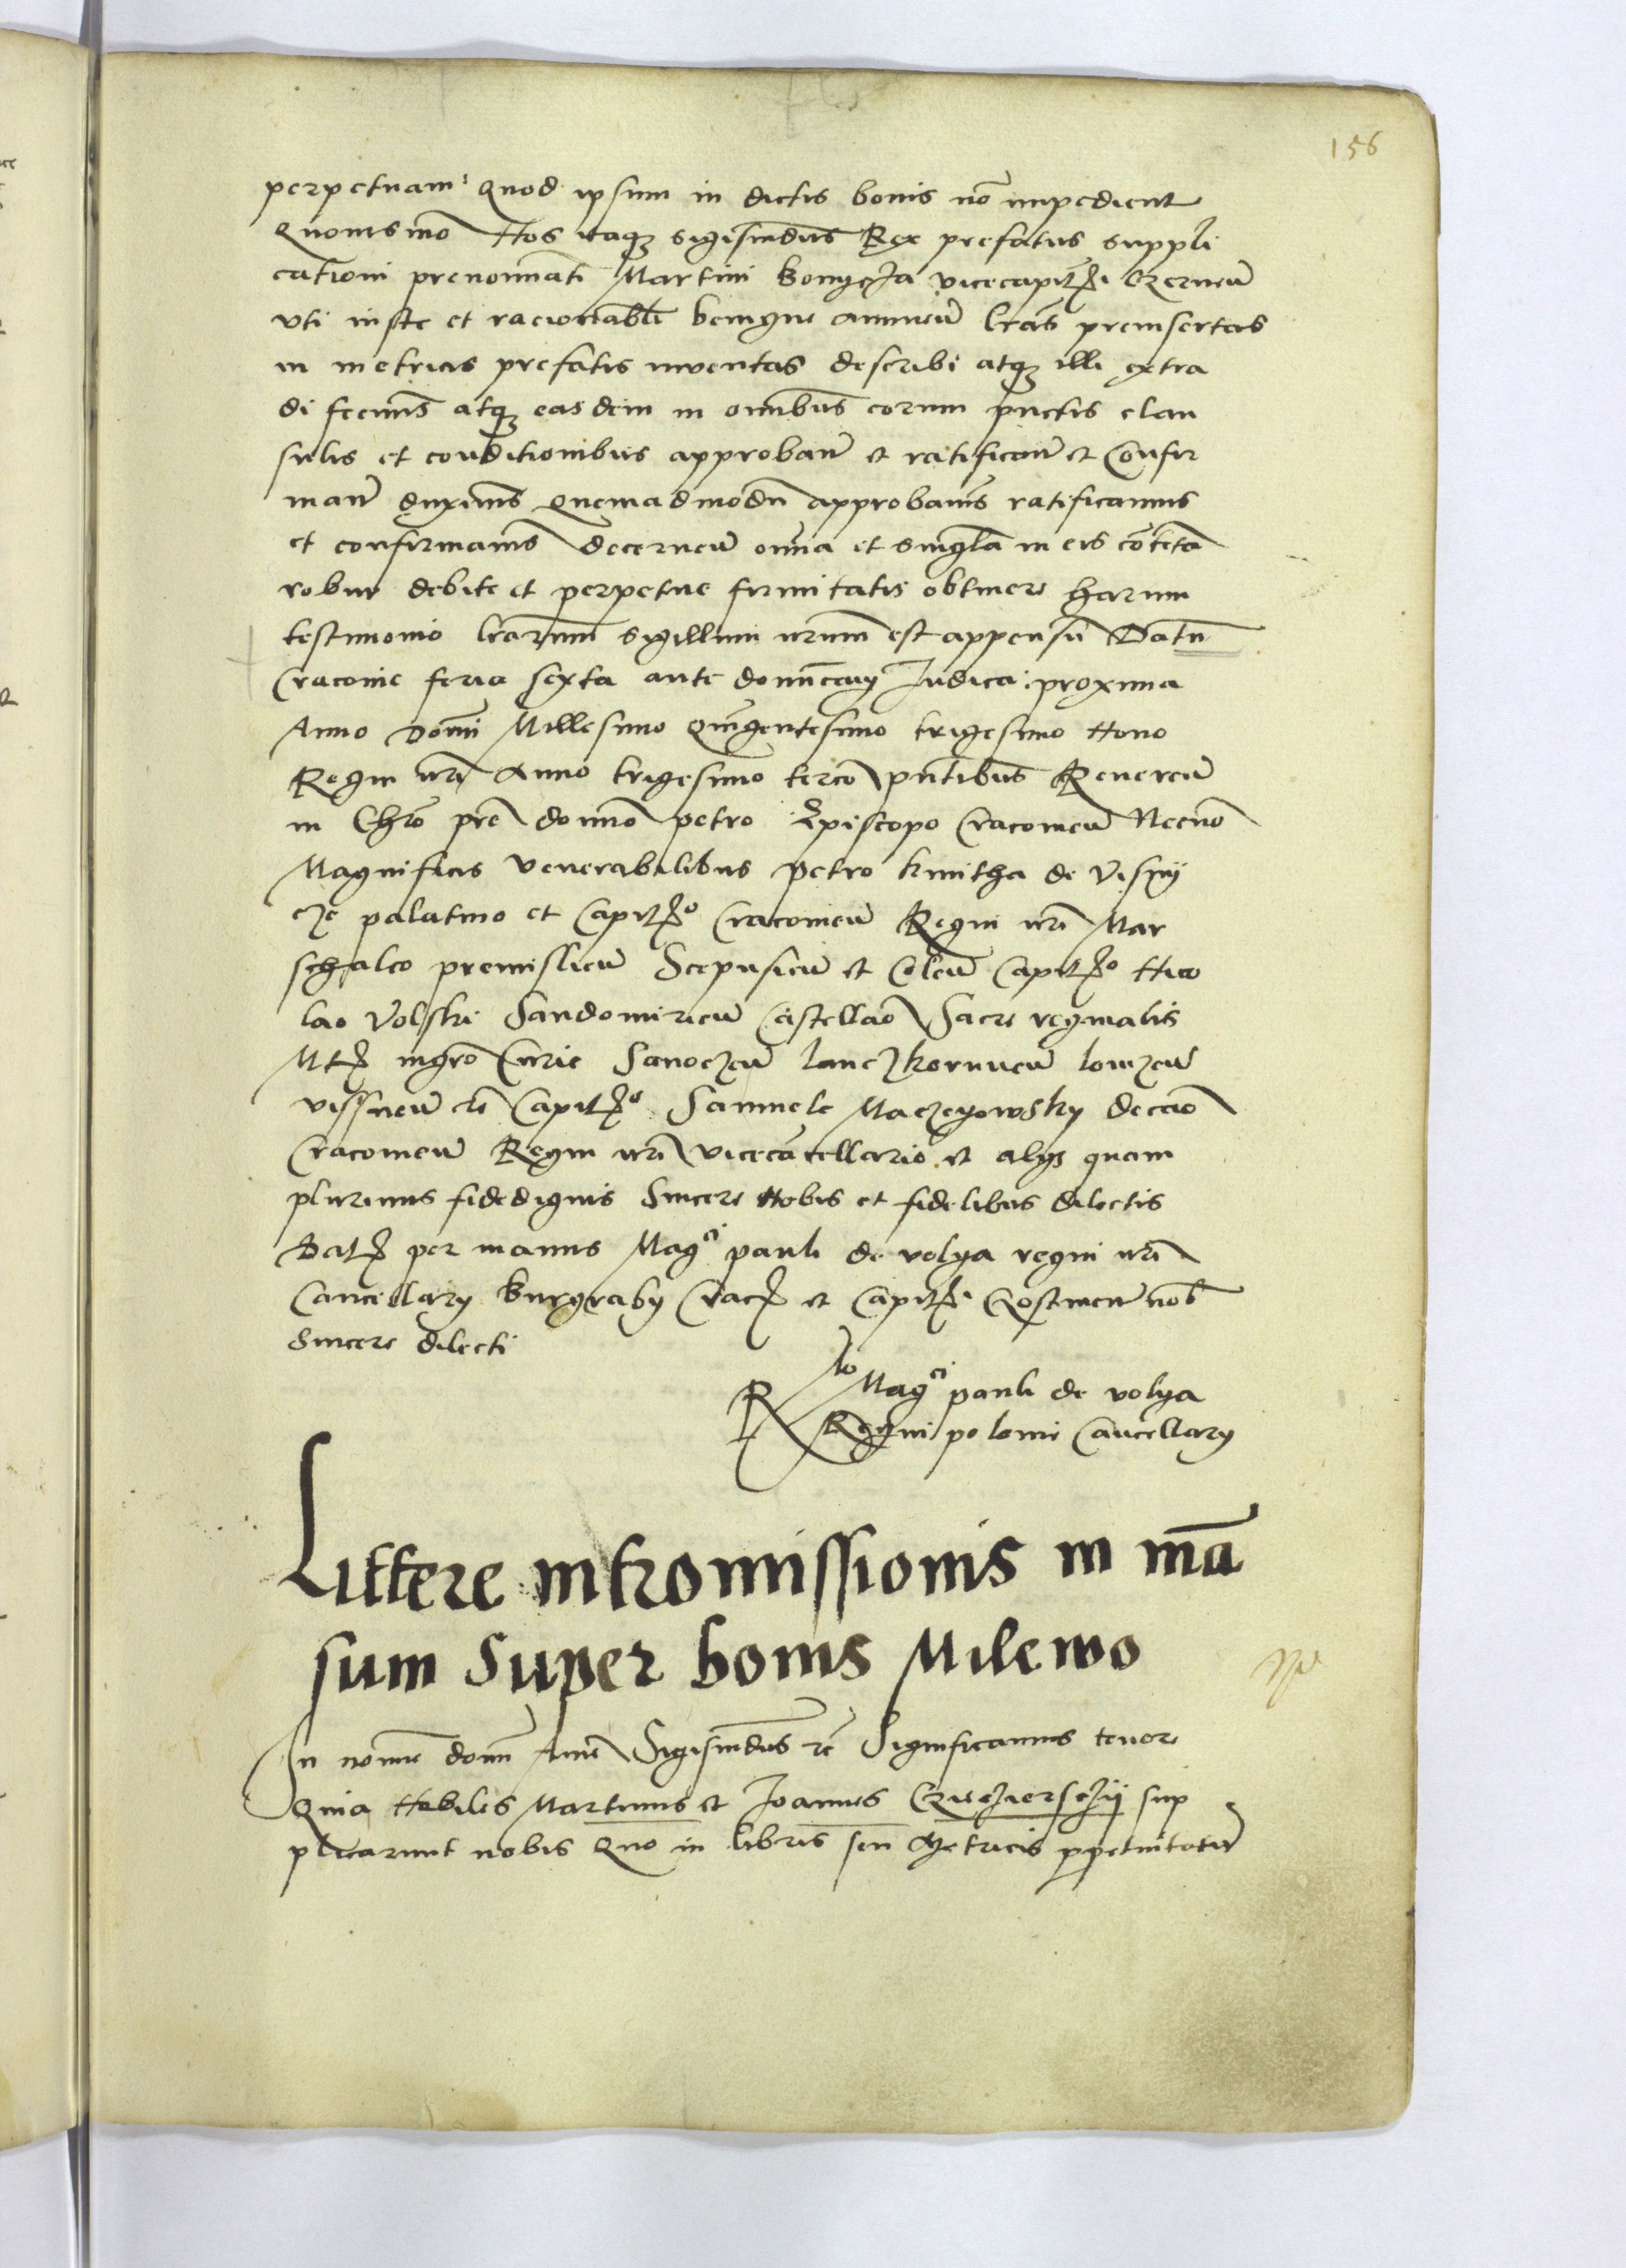 156
perpetuam quod ipsum in dictis bonis nō impedient
Quouismō Nos itaqz sigismdus Rex prefatus suppli
cationi prenomināti Martini vicecapitꝭi Czernen̄
vti iuste et racionabli benigne annuen̄ lrās preinsertas
in metricis prefatis inventas describi atqz illi extra
di fecimꝰ atqz easdem in omībus eorum pūctis clau
sulis et conditionibus approban̄ et ratifican̄ et Confir
man̄ duximꝰ quemadmodū approbamꝰ ratificamus
et confirmamꝰ decernen̄ omīa et singla in eis cōtēta
robur debite et perpetue firmitatis obtinere harum
testimonio lrārum sigillum nrūm est appensū Datū
Cracouie feria sexta ante dominicam Iudica proxima
Anno Domī Millesimo quīgentesimo trigesimo Nono
Regni nrī Anno trigesimo tercō pntibus Reueren̄
in Chrō prē domīo petro Episcopo Cracouien̄ Necnō
Magnificis venerabilibus petro kmitha de visny
cze palatino et Capitꝭo Cracouien̄ Regni nrī Mar
schalco premislien̄ Scepusien̄ et Colen̄ Capitꝭo Nico
lao Volski Sandomirien̄ Castellāo Sacre reginalis
Mtꝭ mgrō Curie Sanoczen̄ lanczkorunen̄ lomzen̄
vissnen̄ ec Capitꝭo Samuele Maczeyowsky decāo
Cracouien̄ Regni nrī vicecācellario et alijs quam
plurimis fidedignis Sincere Nobis et fidelibus dilectis
Datꝭ per manus Magci pauli de volya regni nrī
Cancellarij Burgrabij Cracꝭ et Capitꝭi Gostinen̄ nob
Sincere dilecti
Rlo Magci pauli de volya
Regni polonie Cancellarij
Littere intromissionis in mā
sum super bonis Milewo
In nomīe domī Amē Sigismdus rc Significamus tenore
Quia Nobiles Martinus et Joannes sup
plicarunt nobis Quo in libris seu Metricis ppetuitatū